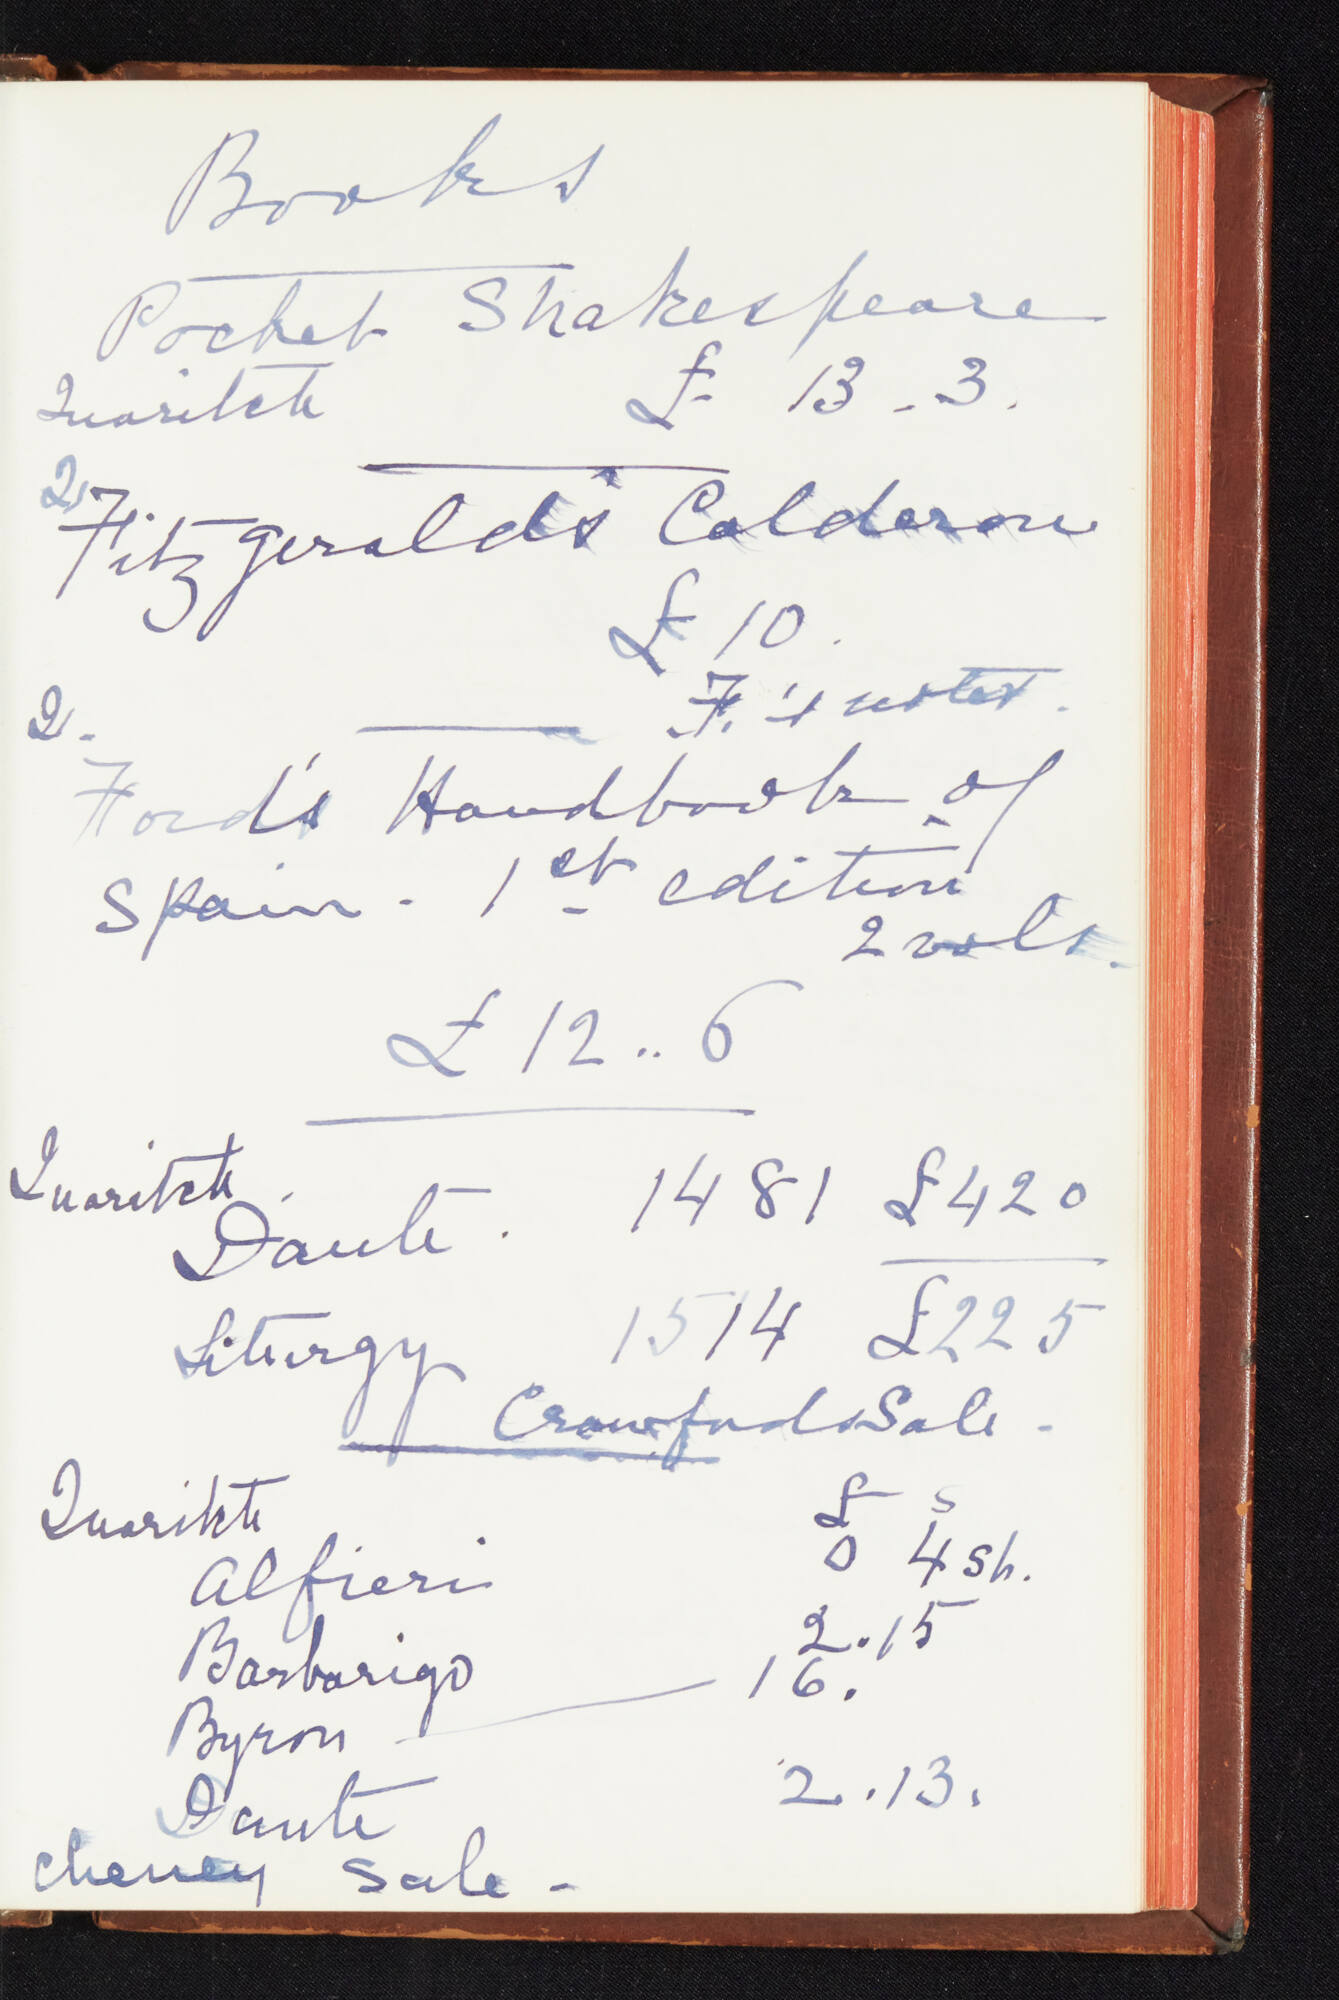 Books
Pocket Shakespeare
Quaritch £ 13 - 3.
Q.
Fitzgerald's Calderon
£ 10.
F.'s notes.
Q. -
Ford's Handbook of
Spain - 1st edition
2 vols.
£ 12 .. 6
Quaritch.
Dante. 1481 £420
Liturgy 1514 £225
Crawfords Sale -
Quaritch £ s
Alfieri 0 4 sh.
Barbarigo 2.15
Byron — 16.
Dante 2.13.
Cheney Sale -